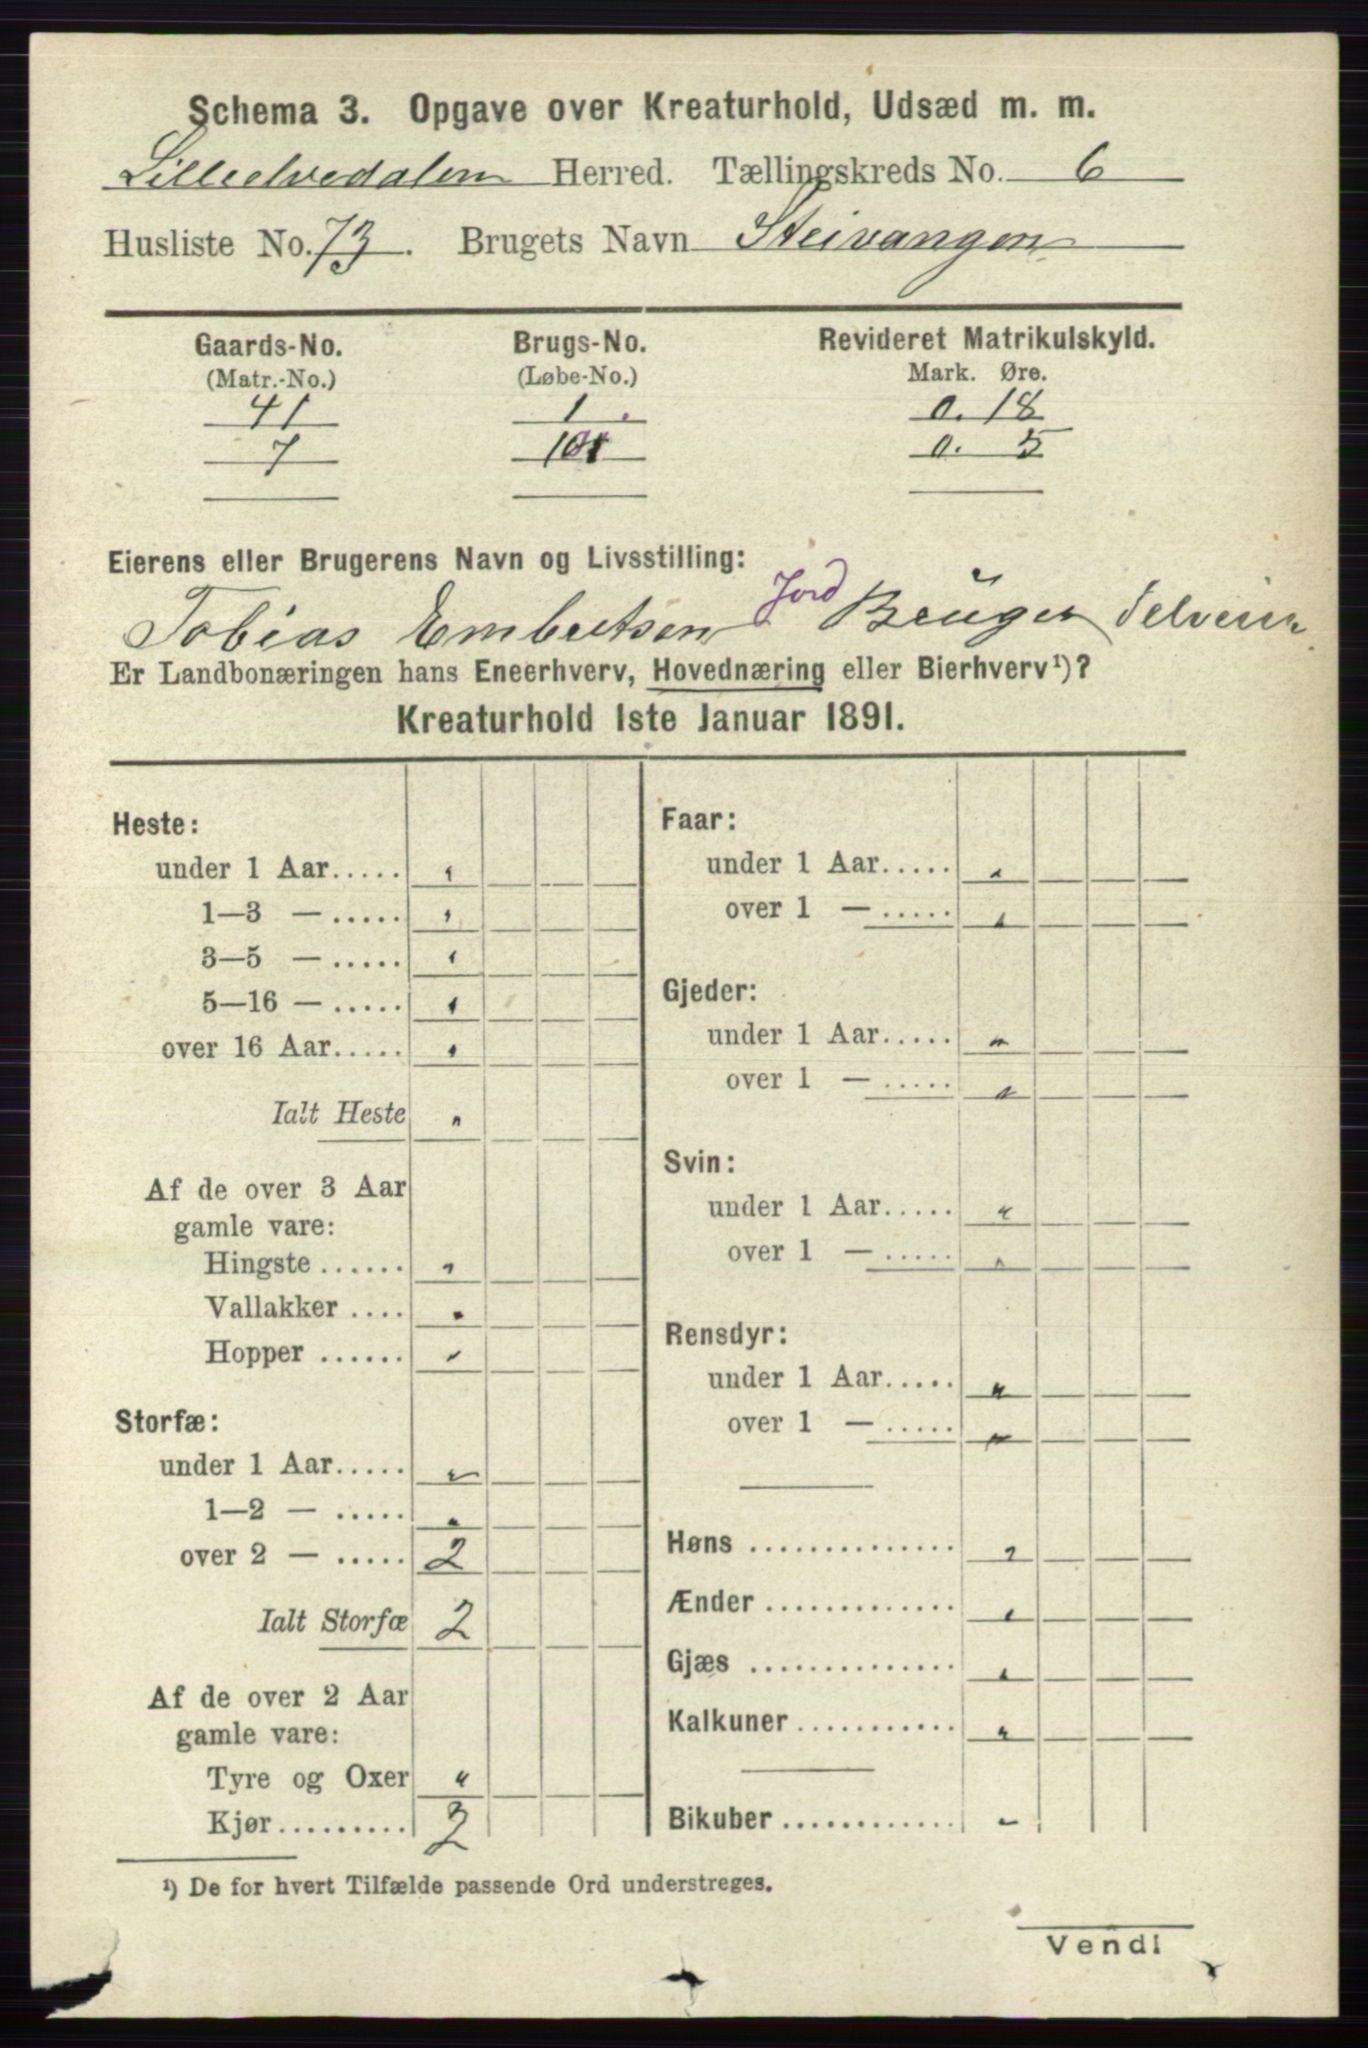 Schema 3. Opgave over Kreaturhold, Udsæd m. m.
Lilleelvedalen Herred. Tællingskreds No. 6
Husliste No. 73. Brugets Navn Steivangen
Gaards-No. Brugs-No. Revideret Matrikulskyld.
(Matr.-No.) (Løbe-No.) Mark. Øre.
41 1 0. 18
7 0. 5
Eierens eller Brugerens Navn og Livsstilling:
Tobias Embretsen Jord Bruger Selveier
Er Landbonæringen hans Eneerhverv, Hovednæring eller Bierhverv¹)?
Kreaturhold 1ste Januar 1891.
Heste:
under 1 Aar..... "
1—3 — ..... "
3—5 — ..... "
5—16 — ..... "
over 16 Aar..... "
Ialt Heste "
Af de over 3 Aar
gamle vare:
Hingste ...... "
Vallakker .... "
Hopper ...... "
Storfæ:
under 1 Aar..... "
1—2 — ..... "
over 2 — ..... 2
Ialt Storfæ 2
Af de over 2 Aar
gamle vare:
Tyre og Oxer "
Kjør......... 2
Faar:
under 1 Aar..... "
over 1 — ..... "
Gjeder:
under 1 Aar..... "
over 1 — ..... "
Svin:
under 1 Aar..... "
over 1 — ..... "
Rensdyr:
under 1 Aar..... "
over 1 — ..... "
Høns .............. "
Ænder ............. "
Gjæs .............. "
Kalkuner ........... "
Bikuber ............ "
¹) De for hvert Tilfælde passende Ord understreges.
Vend!